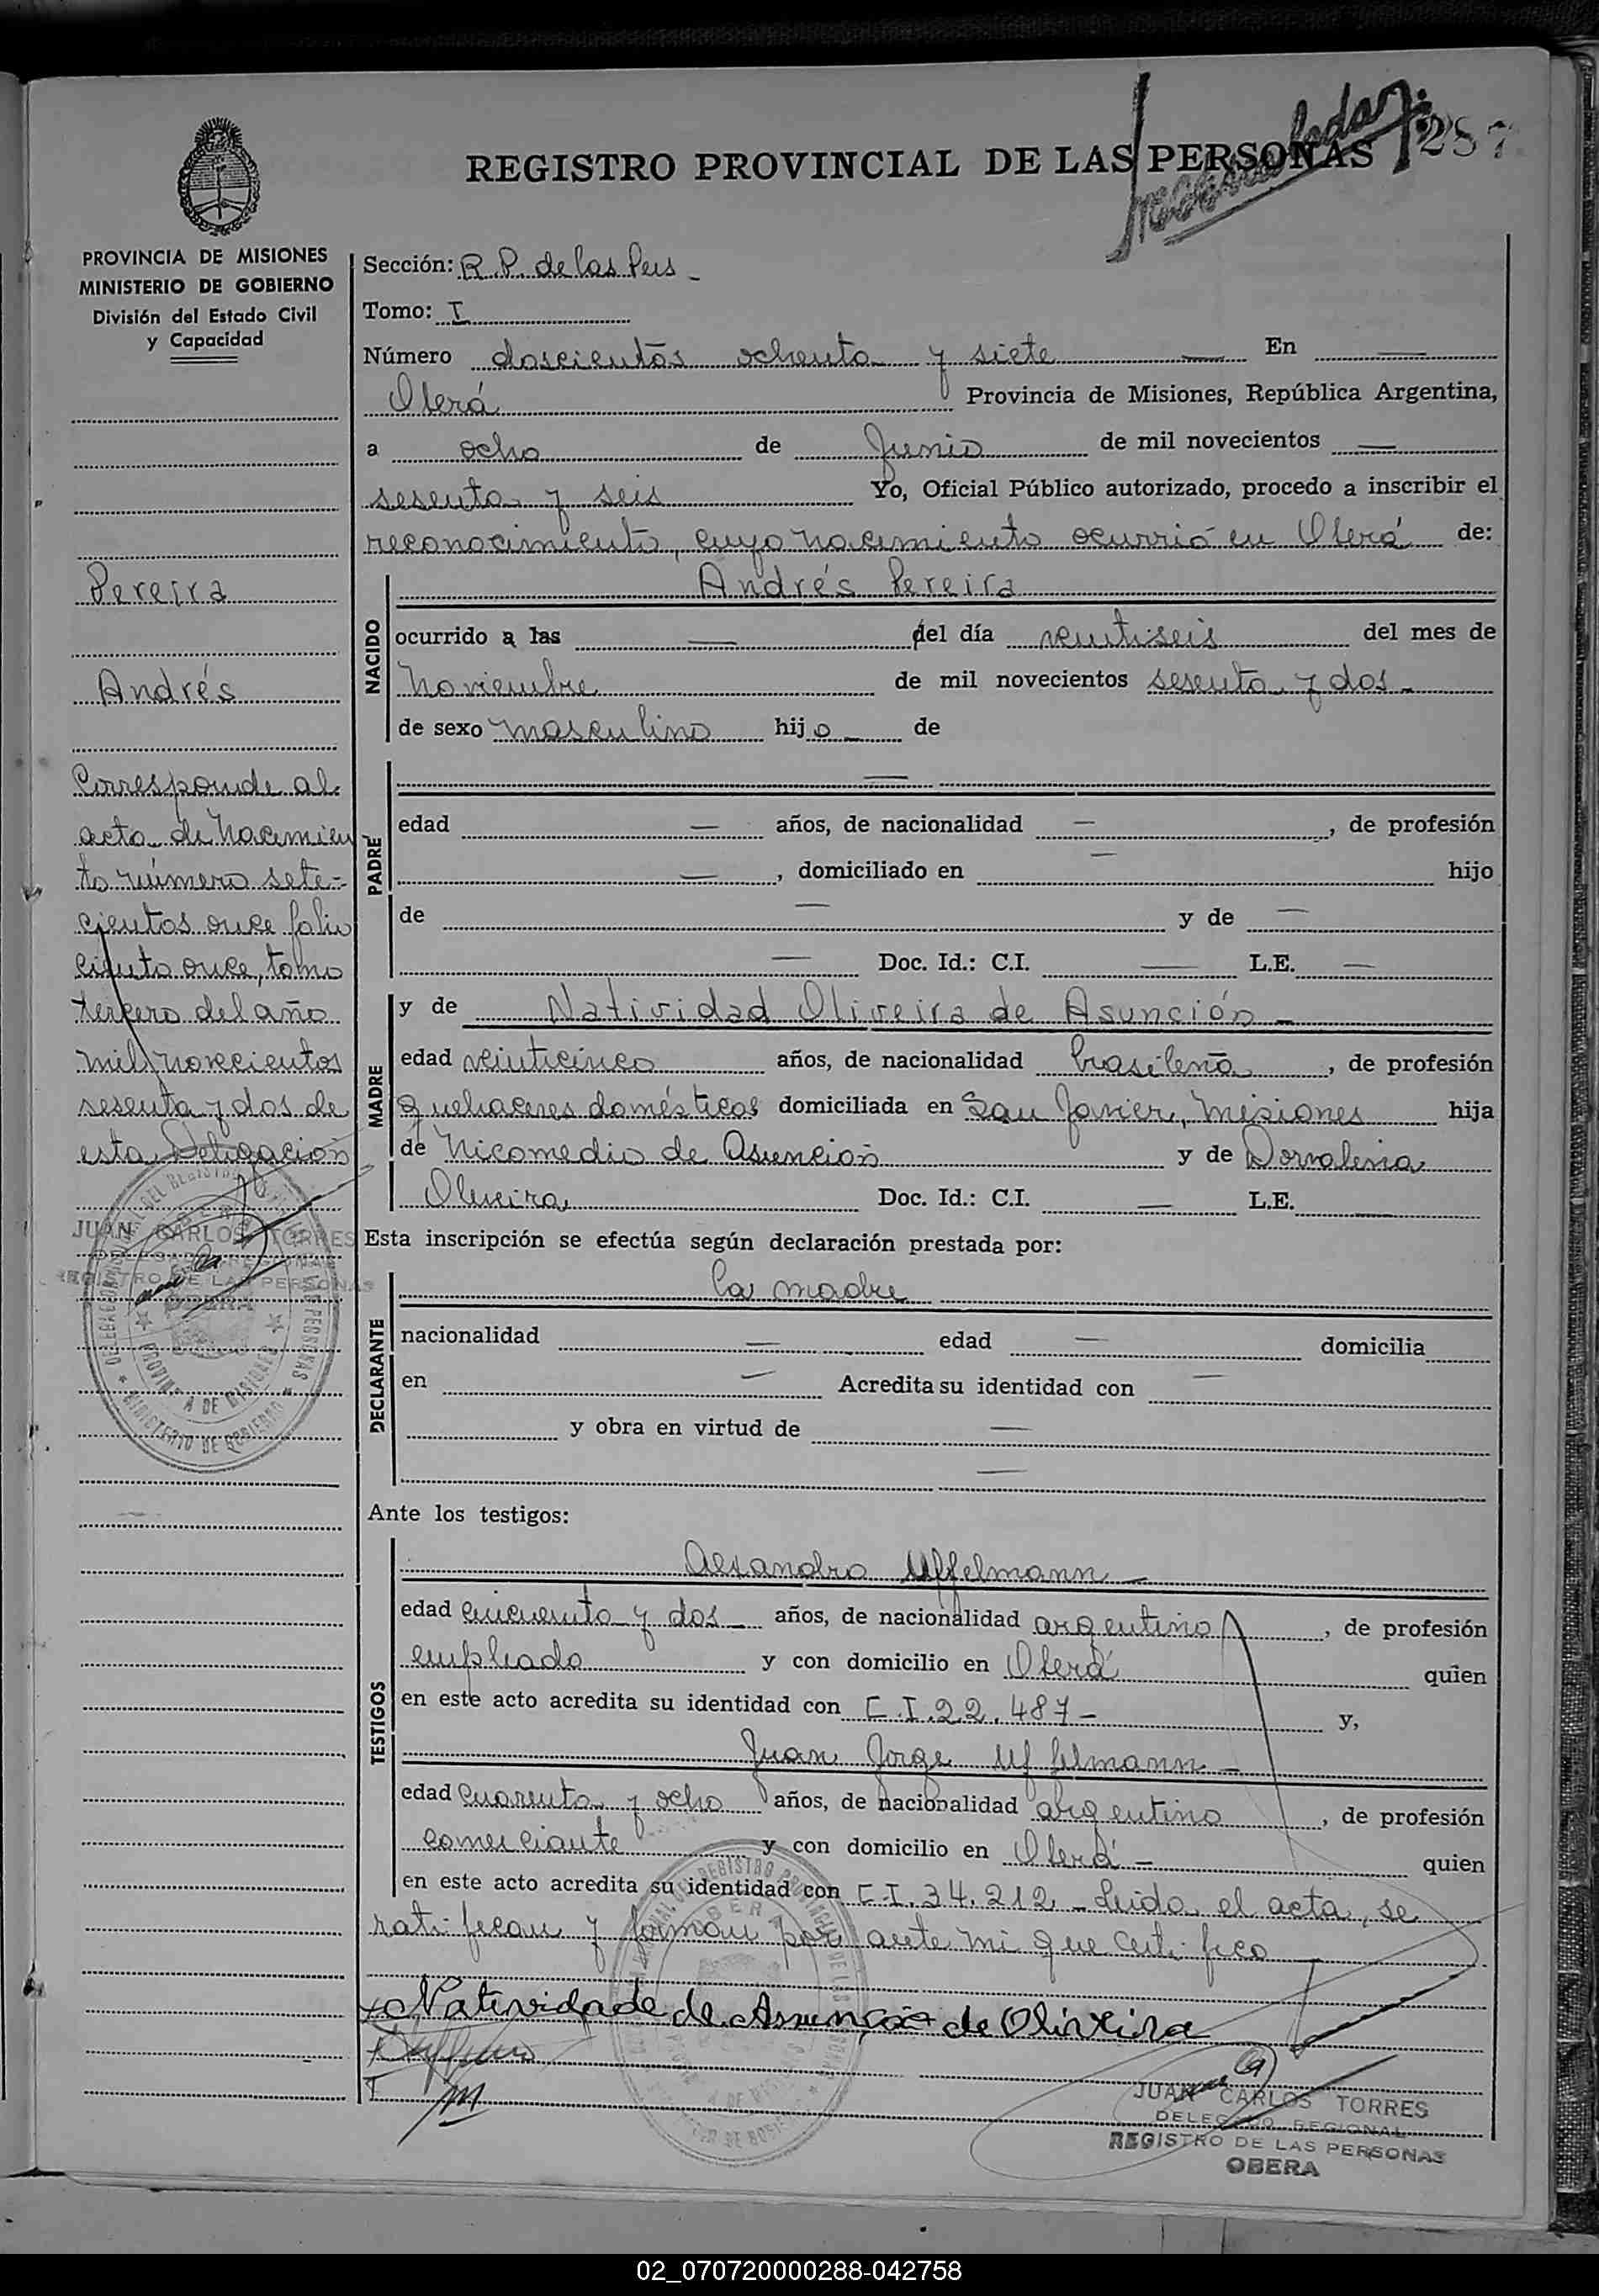 287
REGISTRO PROVINCIAL DE LAS PERSONAS
PROVINCIA DE MISIONES
MINISTERIO DE GOBIERNO
División del Estado Civil
y Capacidad
Pereira
Andrés
Corresponde al
acta de Nacimien
to número sete-
cientos once folio
ciento once, tomo
tercero del año
mil novecientos
sesenta y dos de
esta Delegación
JUAN CARLOS TORRES
DELEGADO REGIONAL
REGISTRO DE LAS PERSONAS
OBERA
Sección: R.P. de las Pers -
Tomo: I
Número doscientos ochenta y siete — En —
Oberá Provincia de Misiones, República Argentina,
a ocho de Junio de mil novecientos —
sesenta y seis Yo, Oficial Público autorizado, procedo a inscribir el
reconocimiento, cuyo nacimiento ocurrió en Oberá de:
NACIDO
Andrés Pereira
ocurrido a las — del día veintiseis del mes de
Noviembre de mil novecientos sesenta y dos -
de sexo masculino hijo - de
PADRE
—
edad — años, de nacionalidad —, de profesión
—, domiciliado en — hijo
de — y de —
— Doc. Id.: C.I. — L.E. —
MADRE
y de Natividad Oliveira de Asunción -
edad veinticinco años, de nacionalidad brasileña, de profesión
quehaceres domésticos domiciliada en San Javier, Misiones hija
de Nicomedio de Asunción y de Dorvalina
Oliveira, Doc. Id.: C.I. — L.E. —
Esta inscripción se efectúa según declaración prestada por:
DECLARANTE
la madre
nacionalidad — edad — domicilia
en — Acredita su identidad con —
y obra en virtud de —
—
Ante los testigos:
TESTIGOS
Alsandro Uffelmann -
edad cincuenta y dos - años, de nacionalidad argentino, de profesión
empleado y con domicilio en Oberá quien
en este acto acredita su identidad con C.I. 22.487 - y,
Juan Jorge Uffelmann -
edad cuarenta y ocho años, de nacionalidad argentino, de profesión
comerciante y con domicilio en Oberá - quien
en este acto acredita su identidad con C.I. 34.212 - Leida el acta, se
ratifican y firman por ante mi que certifico
Natividade de Assunção de Oliveira
JUAN CARLOS TORRES
DELEGADO REGIONAL
REGISTRO DE LAS PERSONAS
OBERA
02_070720000288-042758